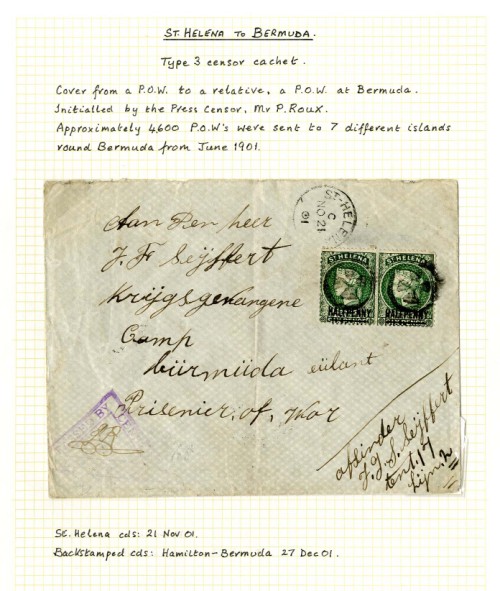 ST. HELENA TO BERMUDA.
Type 3 censor cachet.
Cover from a P.O.W. to a relative, a P.O.W. at Bermuda.
Initialled by the Press Censor, Mr P. Roux.
Approximately 4600 P.O.W's were sent to 7 different islands
round Bermuda from June 1901.
ST. HELENA
C
NO 21
01
Aan Den heer
J. F Seijffert
Krijgsgevangene
Camp
bürmüüda eülant
Prisenier. of. Wor
ST HELENA
HALFPENNY
ST HELENA
HALFPENNY
BY
afsinder
J. J. S. Seijffert
tent. 17
Lijn. 2
St. Helena cds: 21 Nov 01.
Backstamped cds: Hamilton-Bermuda 27 Dec 01.